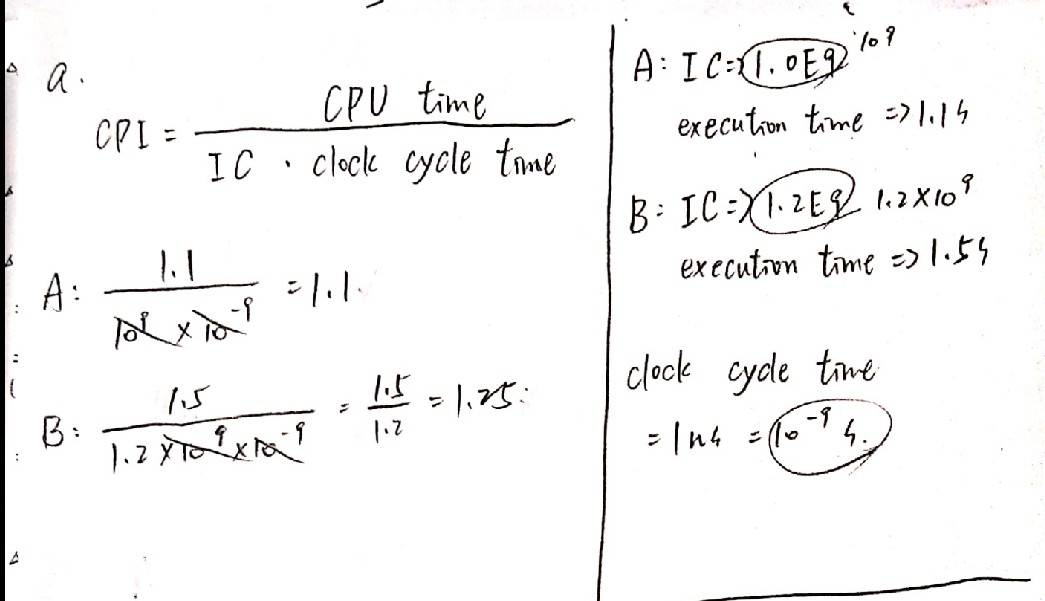 a.
CPI = CPU time / IC · clock cycle time
A: 1.1 / 10⁹ × 10⁻⁹ = 1.1.
B: 1.5 / 1.2 × 10⁹ × 10⁻⁹ = 1.5 / 1.2 = 1.25.
A: IC => 1.0E9 10⁹
execution time => 1.1s
B: IC => 1.2E9 1.2×10⁹
execution time => 1.5s
clock cycle time
= 1ns = 10⁻⁹ s.